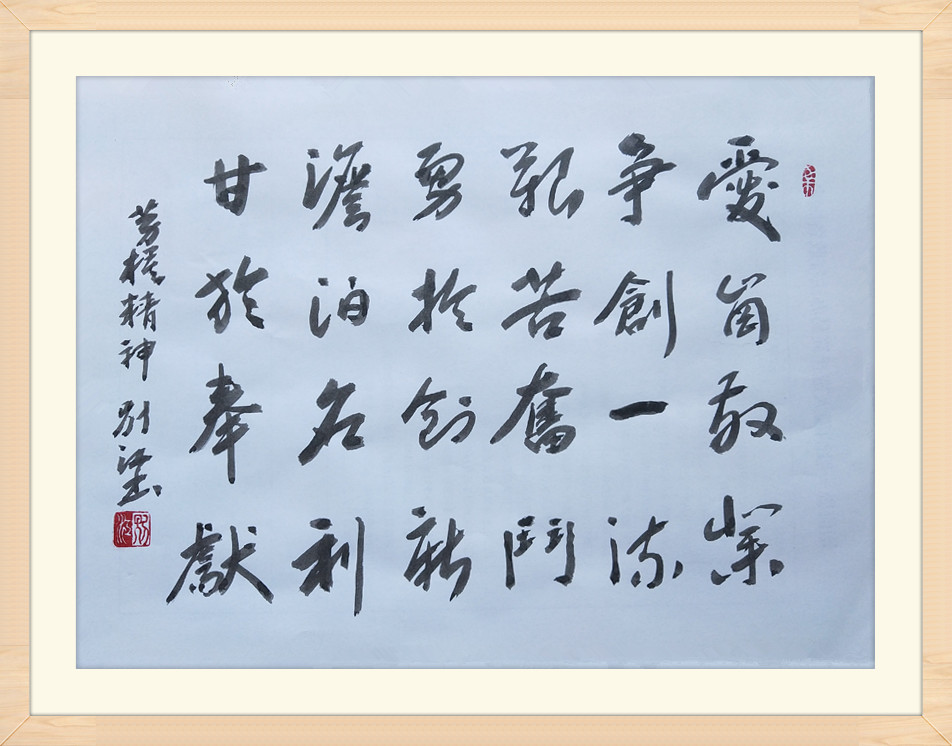 愛崗敬業
争創一流
艱苦奮鬥
勇於創新
澹泊名利
甘於奉獻
劳模精神 别